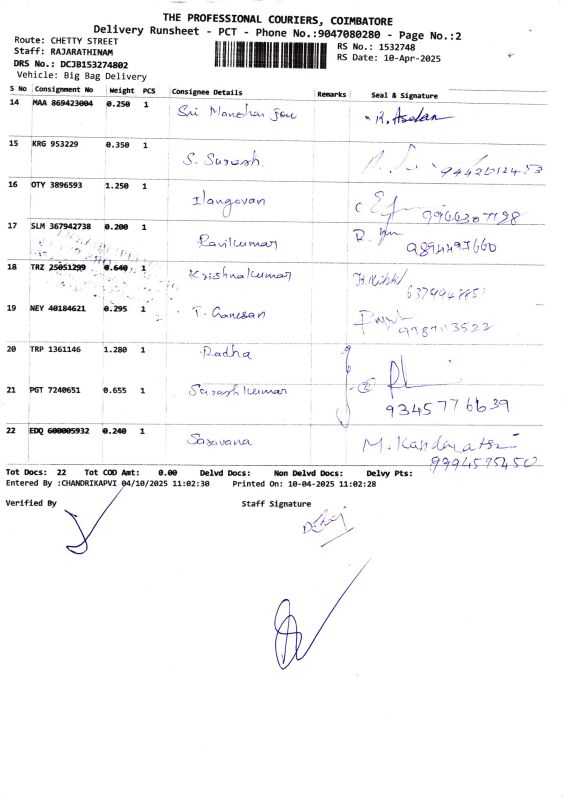 THE PROFESSIONAL COURIERS, COIMBATORE
Delivery Runsheet - PCT - Phone No.:9047080280 - Page No.:2
Route: CHETTY STREET
Staff: RAJARATHINAM
RS No.: 1532748
DRS No.: DCJB153274802
RS Date: 10-Apr-2025
Vehicle: Big Bag Delivery
S No Consignment No Weight PCS Consignee Details Remarks Seal & Signature
14 MAA 869423004 0.250 1 Sri Manohar
15 KRG 953229 0.350 1 S. Suresh
16 OTY 3896593 1.250 1 Ilangovan
17 SLM 367942738 0.200 1 Ravikumar 9894497660
18 TRZ 25051299 0.640 1 Krishnakumar
19 NEY 40184621 0.295 1 T. Ganesan
20 TRP 1361146 1.280 1 Radha
21 PGT 7240651 0.655 1 Sureshkumar 9345776639
22 EDQ 600005932 0.240 1 Saravana 9994575450
Tot Docs: 22 Tot COD Amt: 0.00 Delvd Docs: Non Delvd Docs: Delvy Pts:
Entered By :CHANDRIKAPVI 04/10/2025 11:02:30 Printed On: 10-04-2025 11:02:28
Verified By Staff Signature